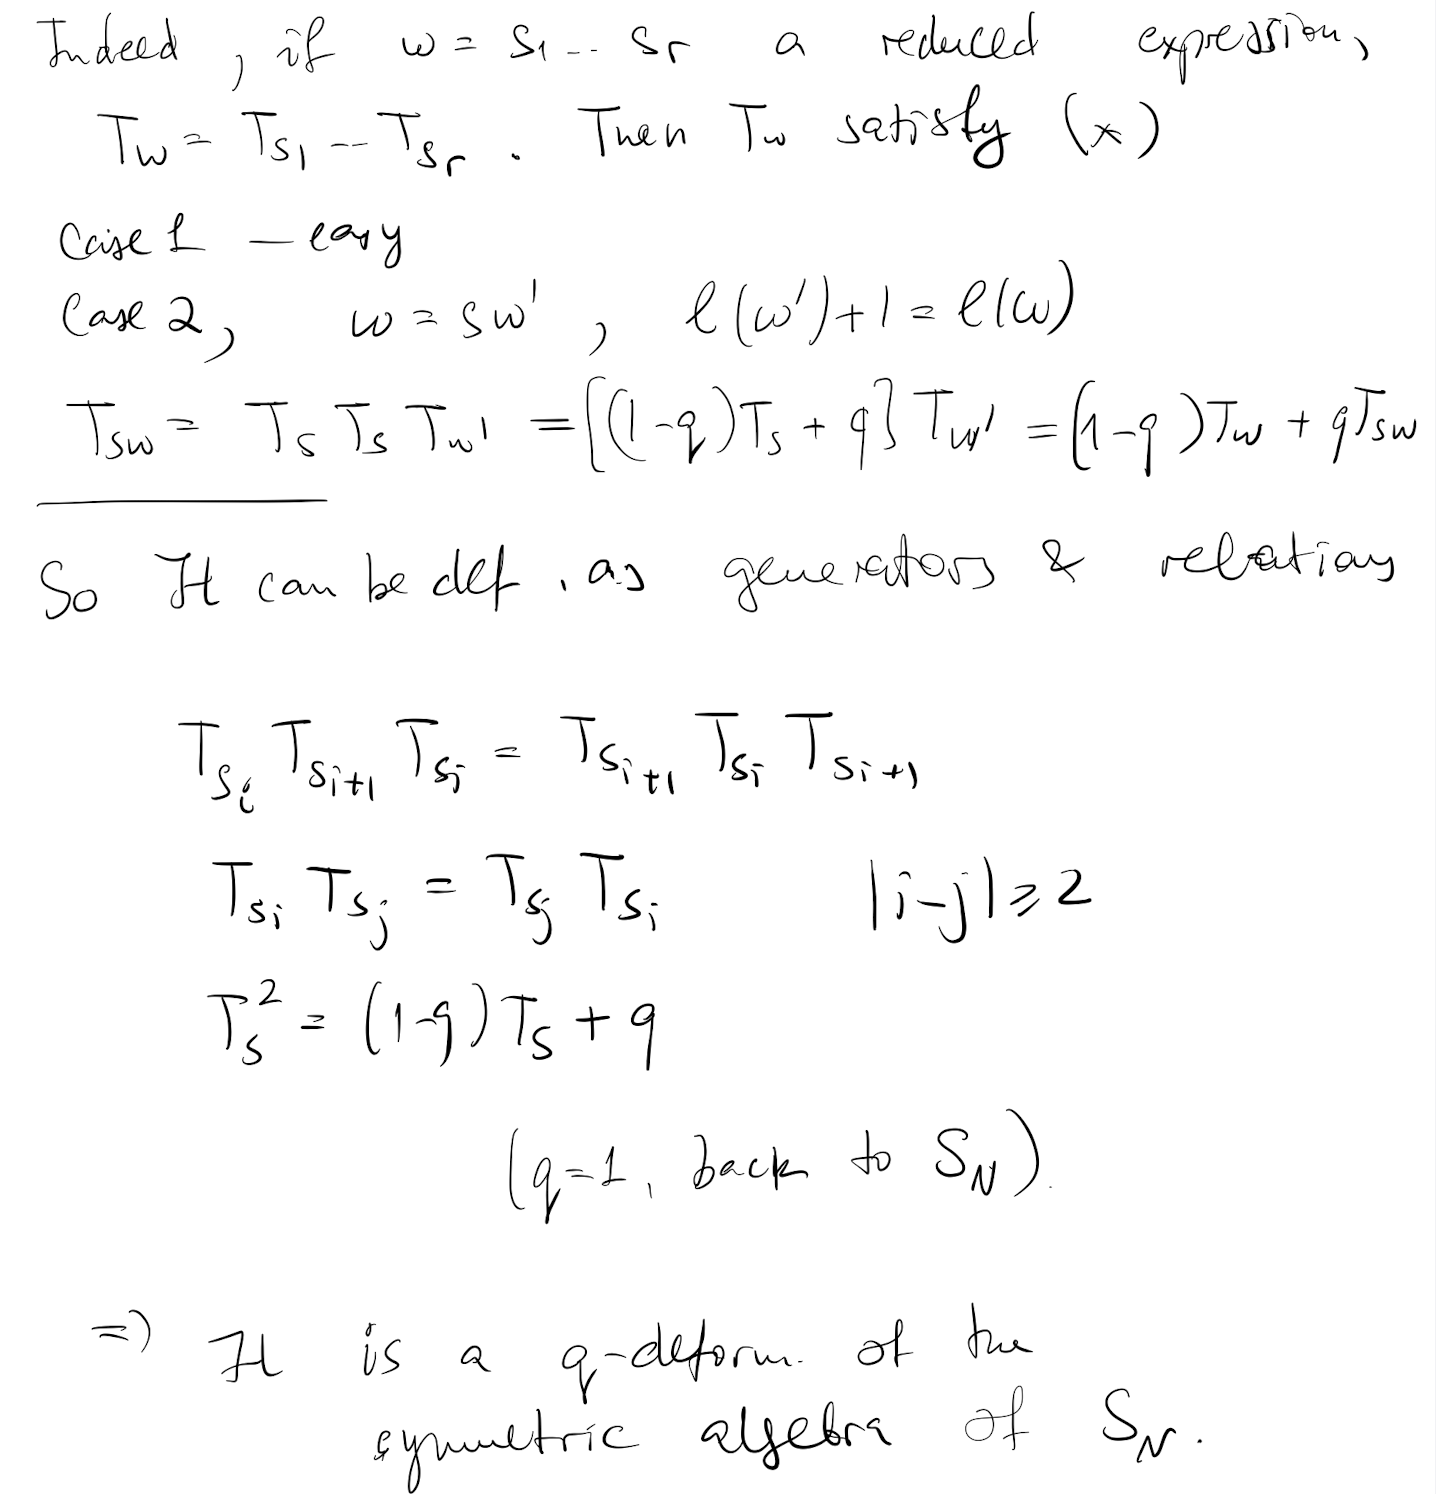 Indeed, if w = s₁ -- sᵣ a reduced expression,
T_w = T_{s₁} -- T_{sᵣ}. Then T_w satisfy (*)
Case 1 — easy
Case 2, w = sw', ℓ(w')+1 = ℓ(w)
T_{sw} = T_s T_s T_{w'} = {(1-q)T_s + q} T_{w'} = (1-q)T_w + qT_{sw}
So H can be def. as generators & relations
T_{s_i} T_{s_{i+1}} T_{s_i} = T_{s_{i+1}} T_{s_i} T_{s_{i+1}}
T_{s_i} T_{s_j} = T_{s_j} T_{s_i} |i-j| ≥ 2
T_s² = (1-q)T_s + q
(q=1, back to S_N).
=> H is a q-deform. of the
symmetric algebra of S_N.